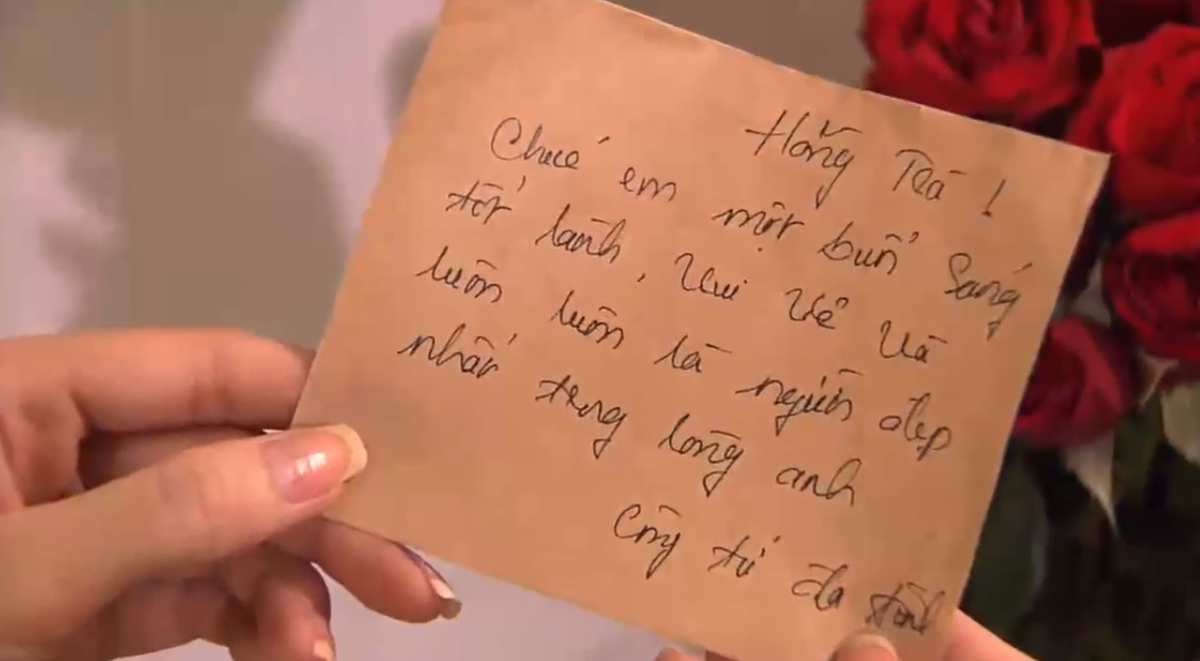 Hồng Trà!
Chúc em một buổi sáng
tốt lành, vui vẻ và
luôn luôn là người đẹp
nhất trong lòng anh
Công tử đa tình